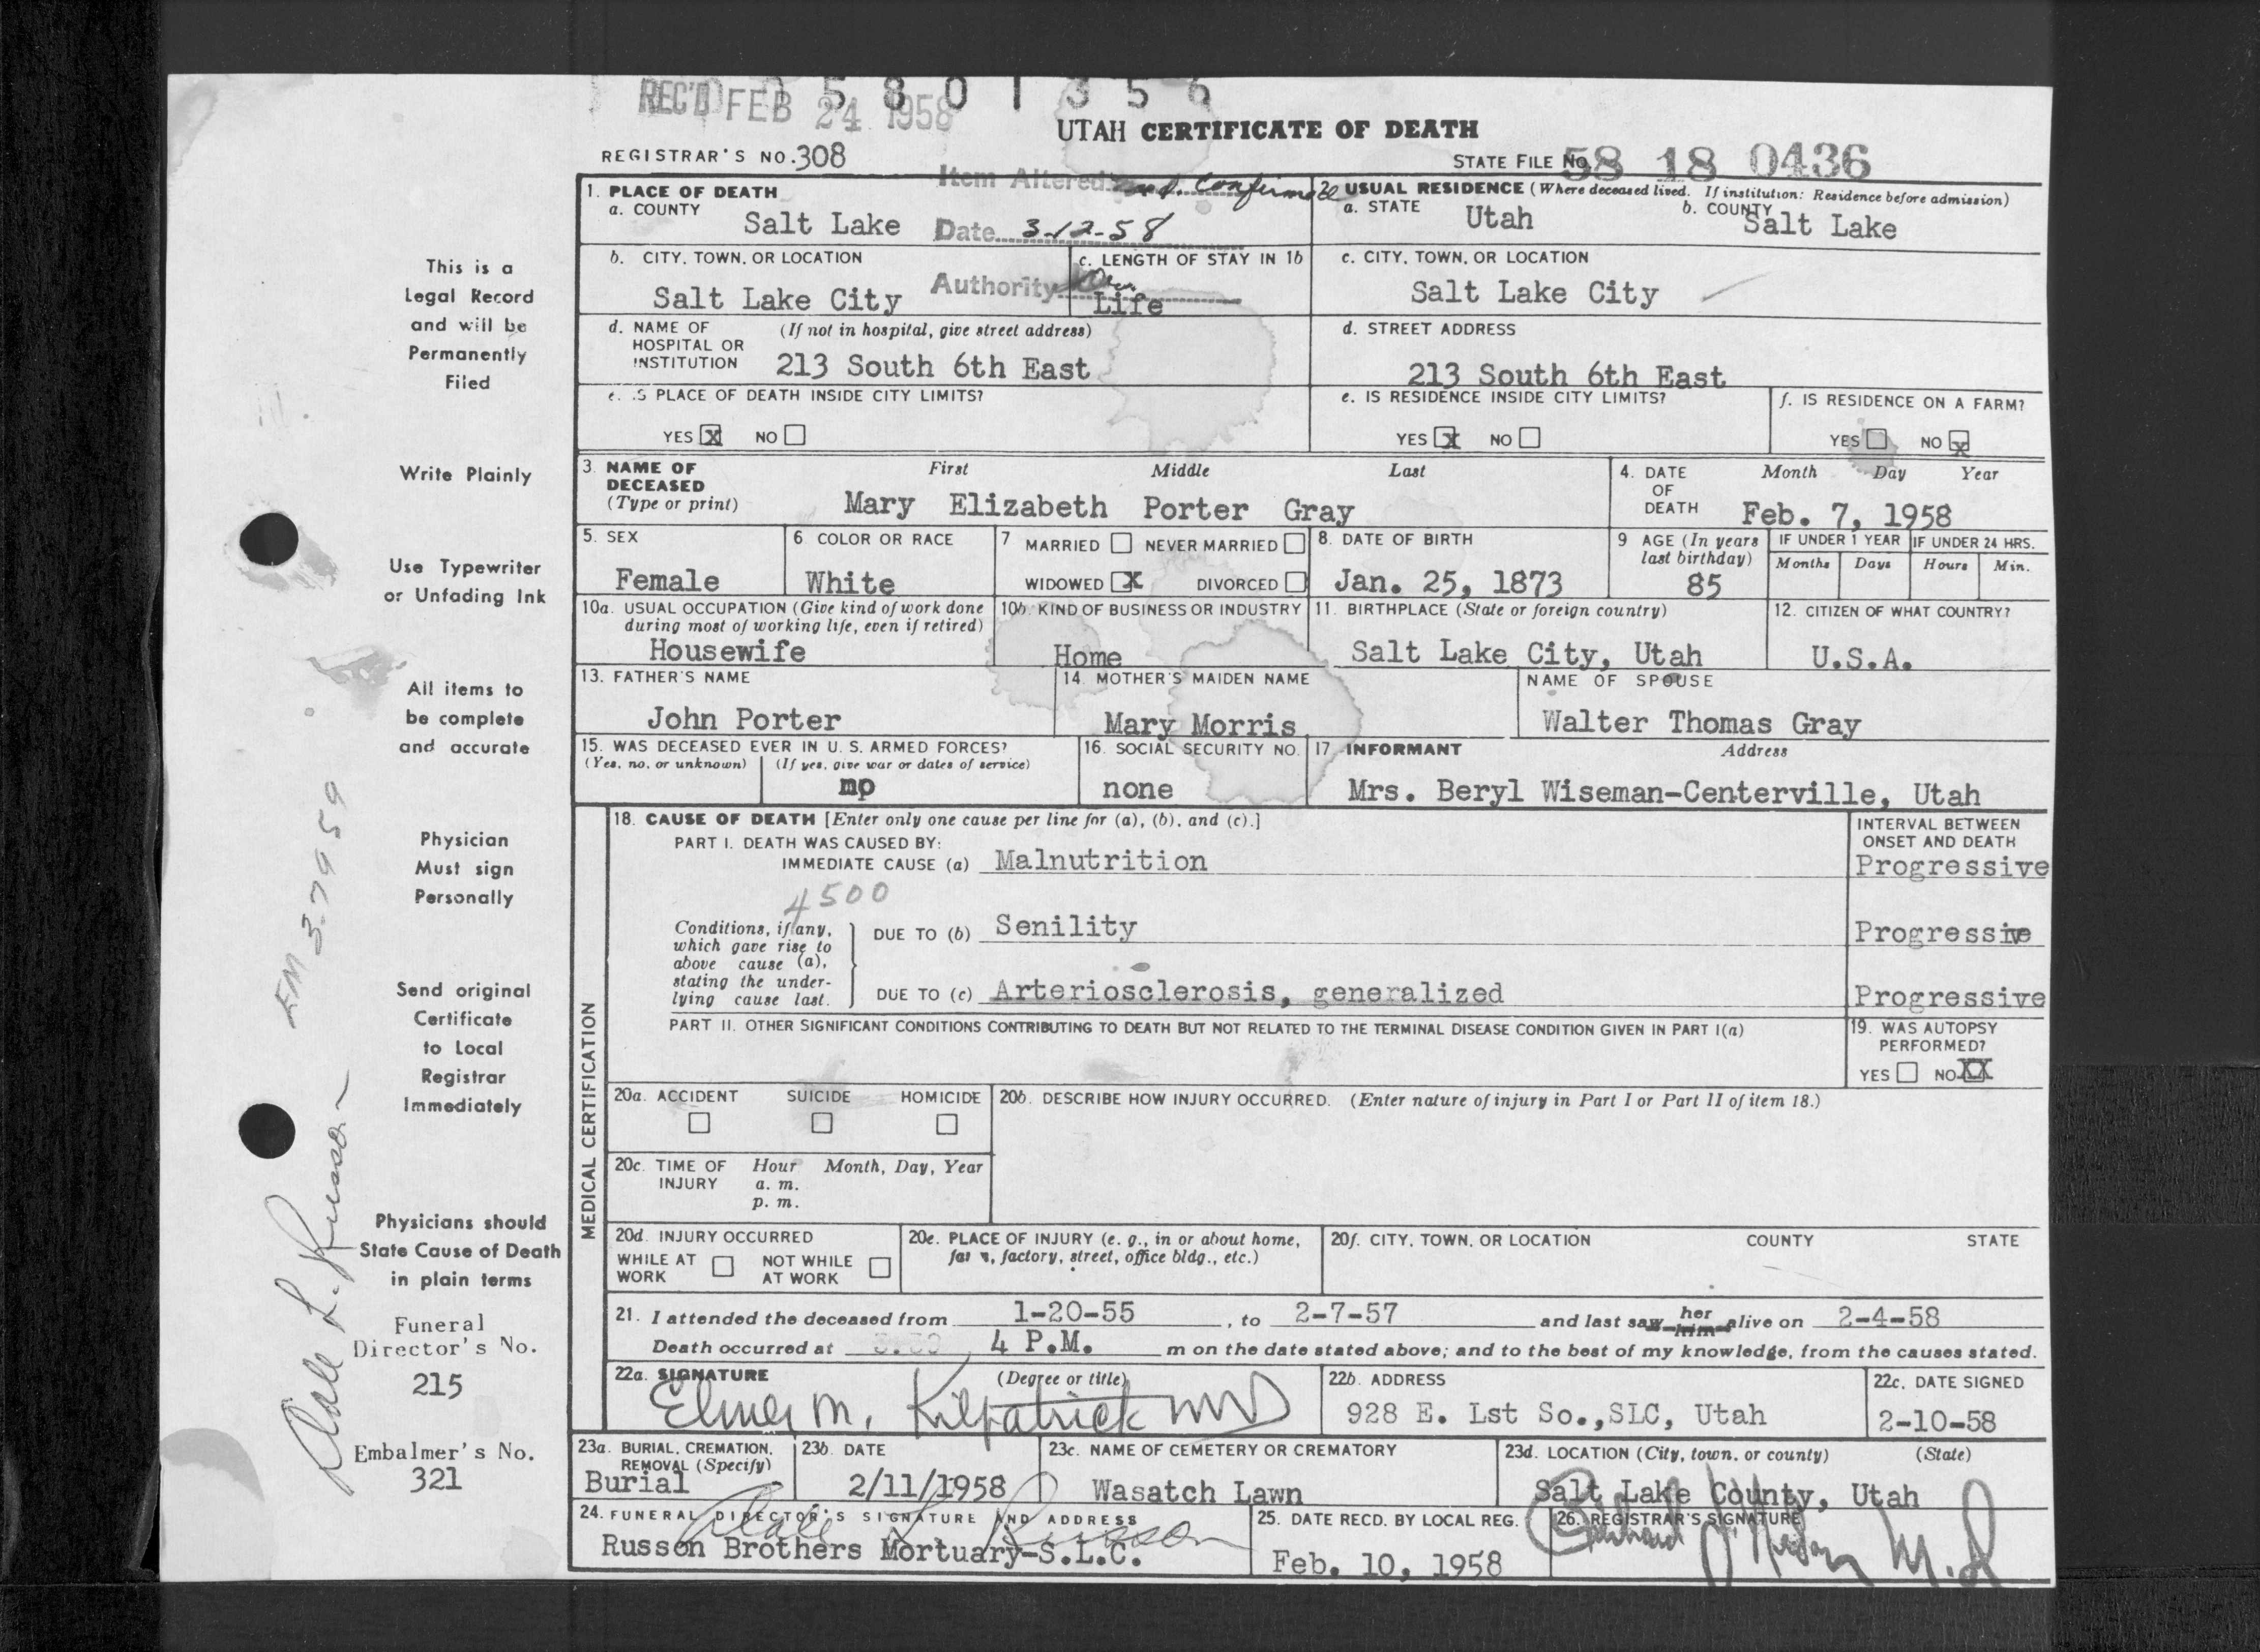 REC'D FEB 24 1958
5801356
UTAH CERTIFICATE OF DEATH
REGISTRAR'S NO. 308
STATE FILE No. 58 18 0436
Item Altered med. confirmed
Date 3-12-58
Authority
1. PLACE OF DEATH
a. COUNTY
Salt Lake
2. USUAL RESIDENCE (Where deceased lived. If institution: Residence before admission)
a. STATE Utah b. COUNTY Salt Lake
b. CITY, TOWN, OR LOCATION
Salt Lake City
c. LENGTH OF STAY IN 1b
Life
c. CITY, TOWN, OR LOCATION
Salt Lake City
d. NAME OF HOSPITAL OR INSTITUTION (If not in hospital, give street address)
213 South 6th East
d. STREET ADDRESS
213 South 6th East
e. IS PLACE OF DEATH INSIDE CITY LIMITS?
YES X NO
e. IS RESIDENCE INSIDE CITY LIMITS?
YES X NO
f. IS RESIDENCE ON A FARM?
YES NO X
3. NAME OF DECEASED (Type or print)
First Middle Last
Mary Elizabeth Porter Gray
4. DATE OF DEATH
Month Day Year
Feb. 7, 1958
5. SEX
Female
6 COLOR OR RACE
White
7 MARRIED NEVER MARRIED
WIDOWED X DIVORCED
8. DATE OF BIRTH
Jan. 25, 1873
9 AGE (In years last birthday)
85
IF UNDER 1 YEAR
Months Days
IF UNDER 24 HRS.
Hours Min.
10a. USUAL OCCUPATION (Give kind of work done during most of working life, even if retired)
Housewife
10b. KIND OF BUSINESS OR INDUSTRY
Home
11. BIRTHPLACE (State or foreign country)
Salt Lake City, Utah
12. CITIZEN OF WHAT COUNTRY?
U.S.A.
13. FATHER'S NAME
John Porter
14. MOTHER'S MAIDEN NAME
Mary Morris
NAME OF SPOUSE
Walter Thomas Gray
15. WAS DECEASED EVER IN U. S. ARMED FORCES?
(Yes, no, or unknown) (If yes, give war or dates of service)
no
16. SOCIAL SECURITY NO.
none
17 INFORMANT Address
Mrs. Beryl Wiseman-Centerville, Utah
MEDICAL CERTIFICATION
18. CAUSE OF DEATH [Enter only one cause per line for (a), (b), and (c).]
PART I. DEATH WAS CAUSED BY:
IMMEDIATE CAUSE (a) Malnutrition
INTERVAL BETWEEN ONSET AND DEATH
Progressive
4500
Conditions, if any, which gave rise to above cause (a), stating the underlying cause last.
DUE TO (b) Senility
Progressive
DUE TO (c) Arteriosclerosis, generalized
Progressive
PART II. OTHER SIGNIFICANT CONDITIONS CONTRIBUTING TO DEATH BUT NOT RELATED TO THE TERMINAL DISEASE CONDITION GIVEN IN PART I(a)
19. WAS AUTOPSY PERFORMED?
YES NO XX
20a. ACCIDENT SUICIDE HOMICIDE
20b. DESCRIBE HOW INJURY OCCURRED. (Enter nature of injury in Part I or Part II of item 18.)
20c. TIME OF INJURY
Hour Month, Day, Year
a. m.
p. m.
20d. INJURY OCCURRED
WHILE AT WORK NOT WHILE AT WORK
20e. PLACE OF INJURY (e. g., in or about home, farm, factory, street, office bldg., etc.)
20f. CITY, TOWN, OR LOCATION COUNTY STATE
21. I attended the deceased from 1-20-55, to 2-7-57 and last saw her him alive on 2-4-58
Death occurred at 4 P.M. m on the date stated above; and to the best of my knowledge, from the causes stated.
22a. SIGNATURE (Degree or title)
Elmer M. Kilpatrick MD
22b. ADDRESS
928 E. Lst So.,SLC, Utah
22c. DATE SIGNED
2-10-58
23a. BURIAL, CREMATION, REMOVAL (Specify)
Burial
23b. DATE
2/11/1958
23c. NAME OF CEMETERY OR CREMATORY
Wasatch Lawn
23d. LOCATION (City, town, or county) (State)
Salt Lake County, Utah
24. FUNERAL DIRECTOR'S SIGNATURE AND ADDRESS
Dale L. Russon
Russon Brothers Mortuary-S.L.C.
25. DATE RECD. BY LOCAL REG.
Feb. 10, 1958
26. REGISTRAR'S SIGNATURE
M.D.
This is a
Legal Record
and will be
Permanently
Filed
Write Plainly
Use Typewriter
or Unfading Ink
All items to
be complete
and accurate
Physician
Must sign
Personally
Send original
Certificate
to Local
Registrar
Immediately
Physicians should
State Cause of Death
in plain terms
Funeral
Director's No.
215
Embalmer's No.
321
Dale L. Russon